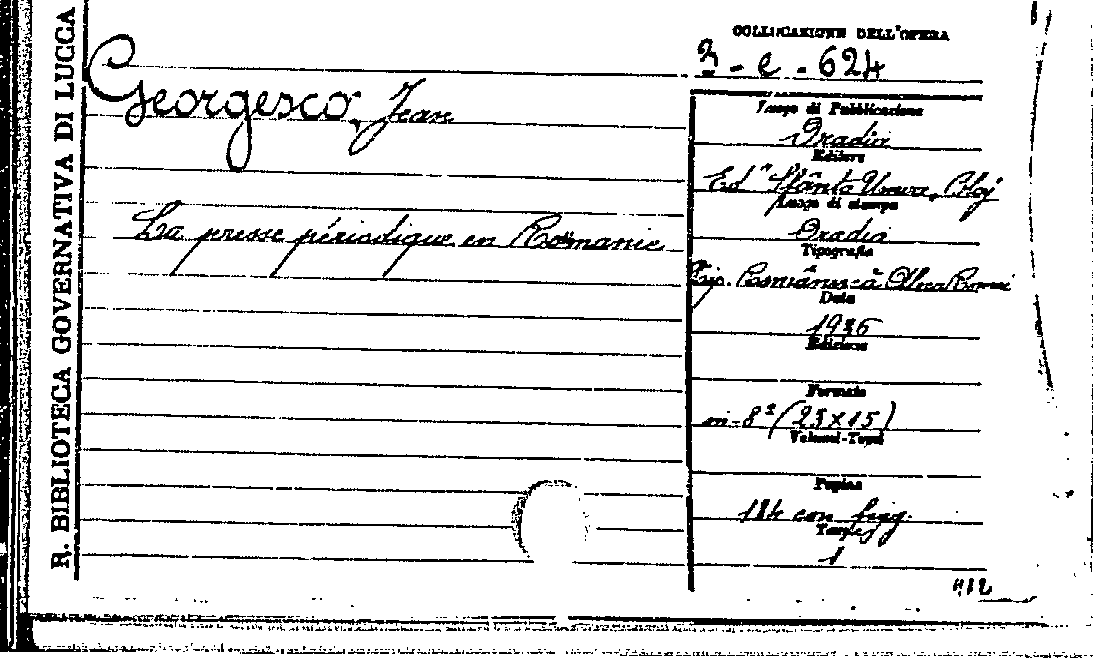 R. BIBLIOTECA GOVERNATIVA DI LUCCA
Georgesco, Jean
La presse périodique en Romanie
COLLOCAZIONE DELL'OPERA
3 - e - 624
Luogo di Pubblicazione
Oradia
Editore
Ed. "Sfânta Unire, Cluj
Luogo di stampa
Oradia
Tipografia
Tip. Românescă
Data
1936
Edizione
Formato
in-8° (23×15)
Volumi-Tomi
Pagine
184 con fig.
Tavole
1